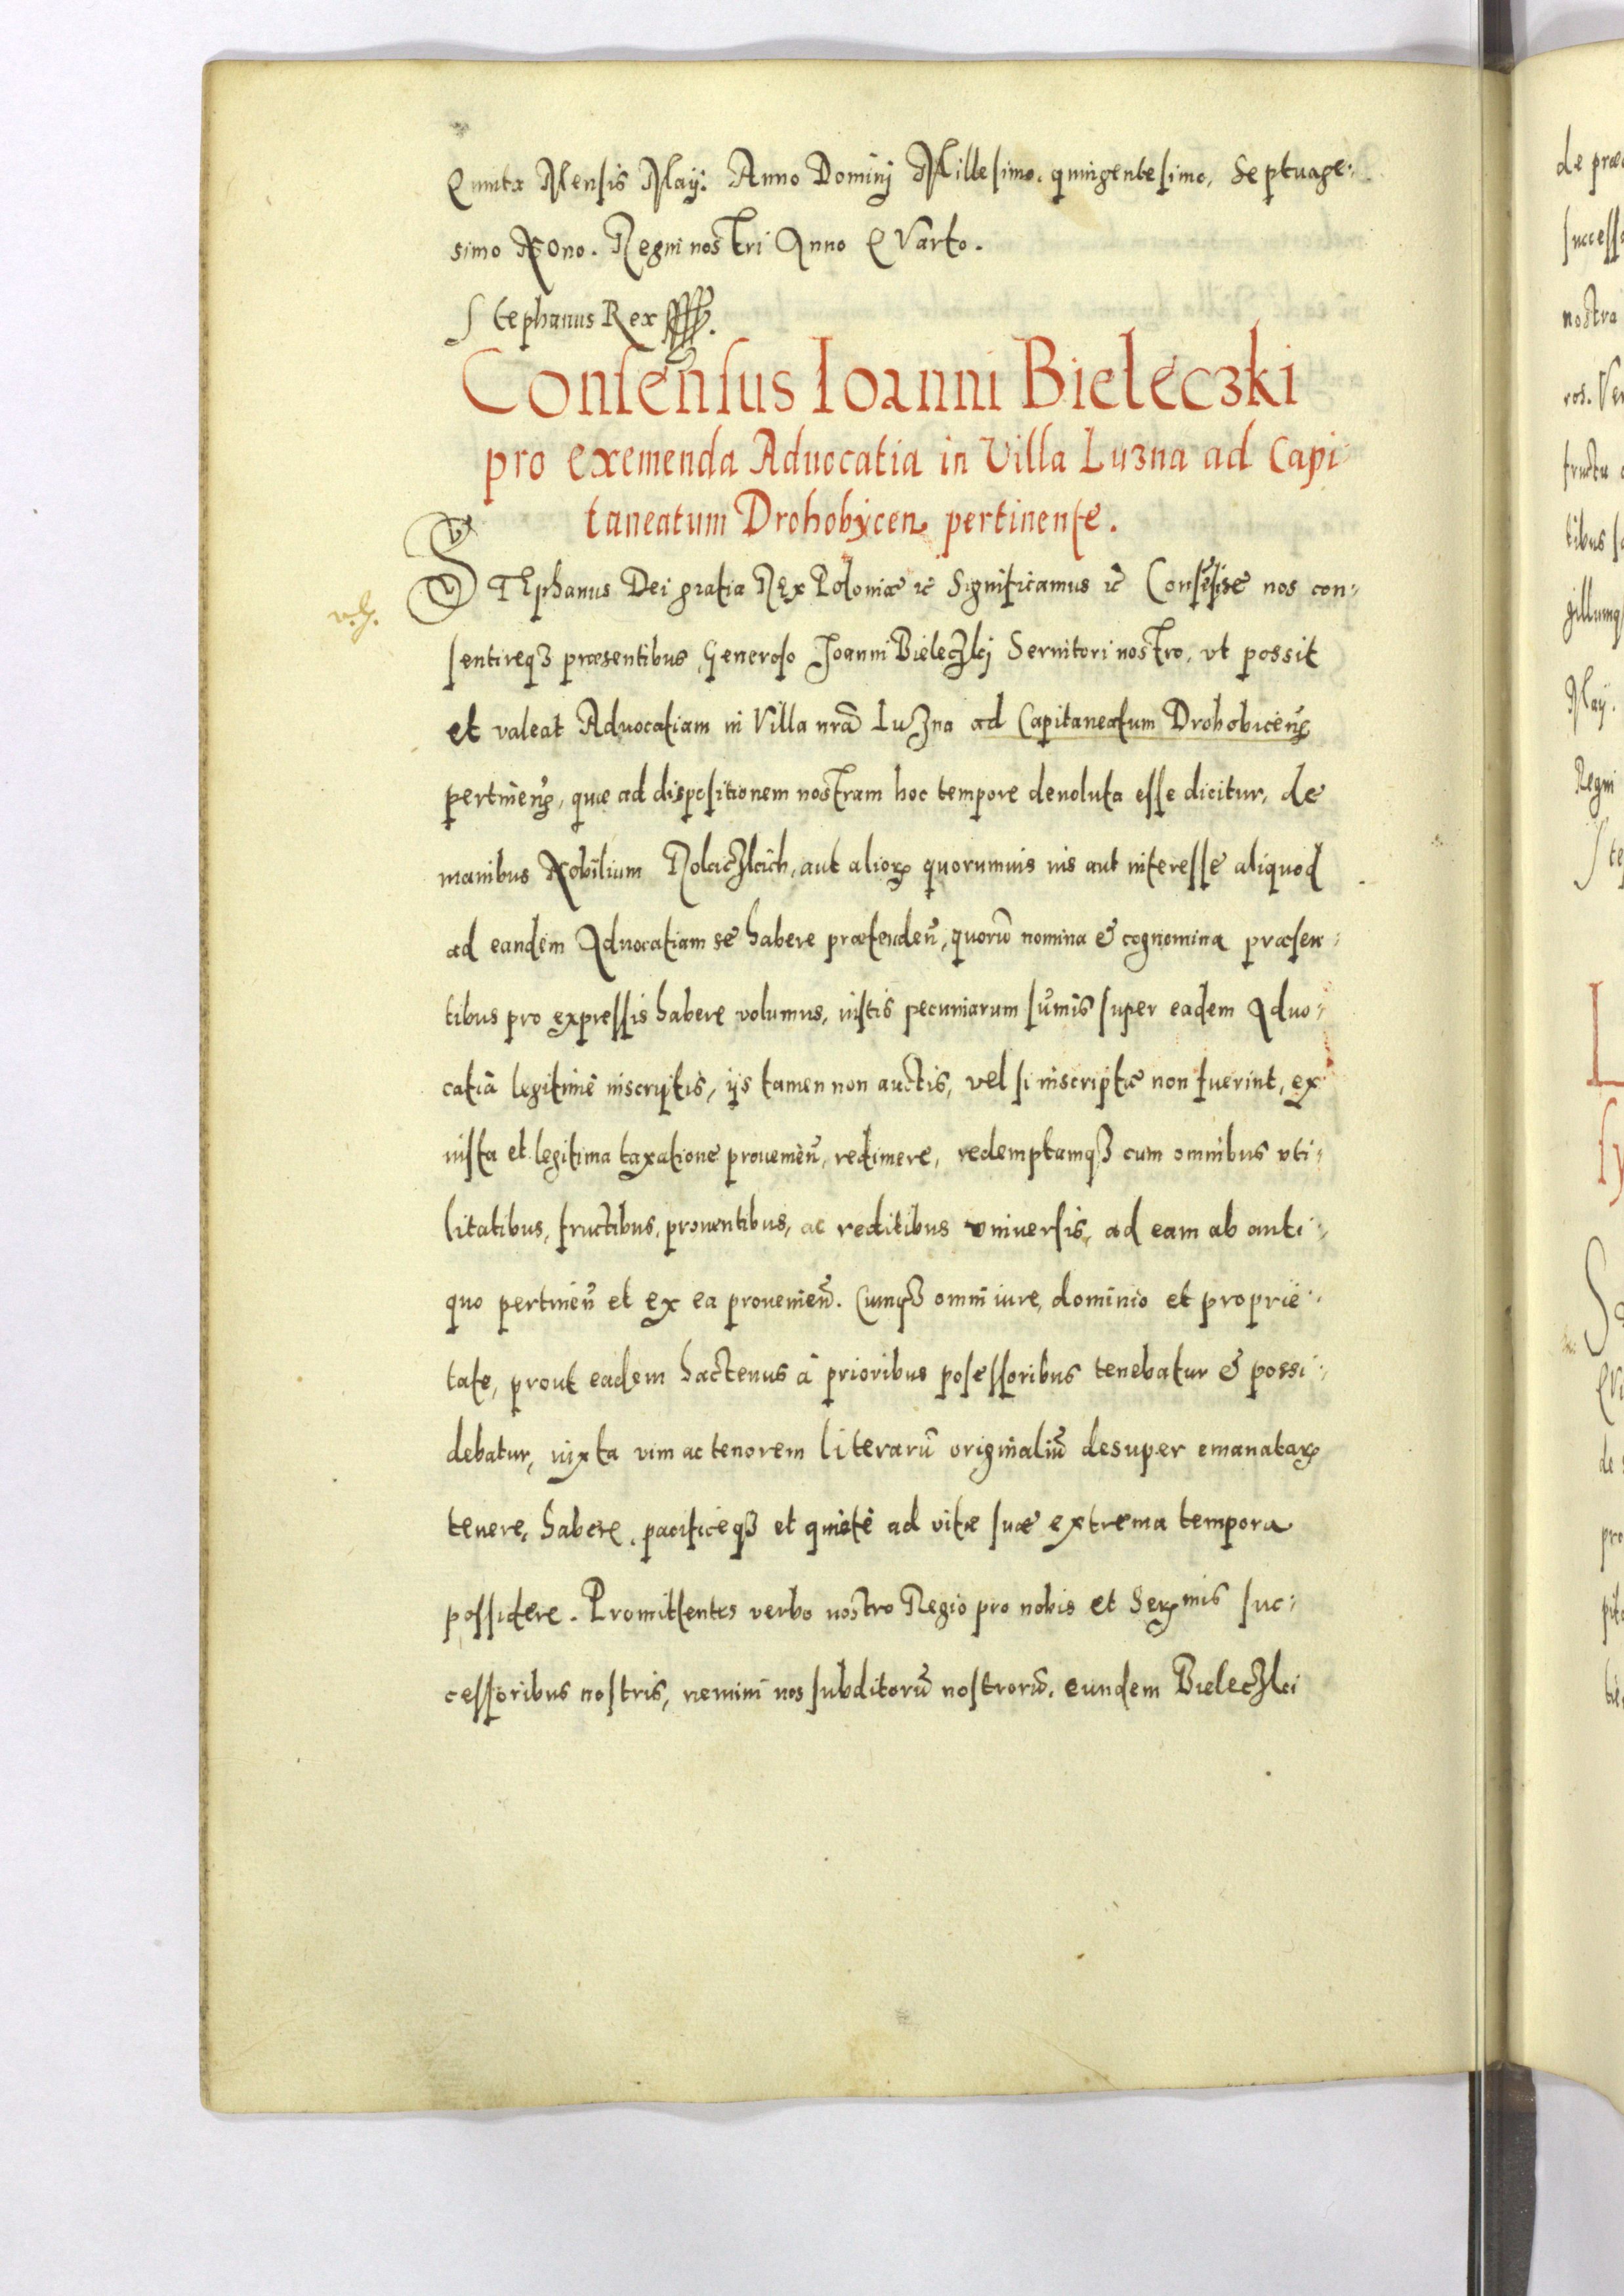 Quinta Mensis Maij. Anno Dominj Millesimo. quingentesimo, Septuage:
simo Nono. Regni nostri Anno QVarto.
Stephanus Rex
Consensus Ioanni Bieleczki
pro exemenda Aduocatia in Villa Luzna ad Capi
taneatum Drohobÿcen pertinente.
STEphanus Dei gratia REx Poloniæ &c Significamus &c Consēsise nos con:
sentireqꝫ præsentibus Generoso Joanni Bieleczkj Seruitori nostro, vt possit
et valeat Aduocatiam in Villa nrā Luzna ad Capitaneatum Drohobicen̄
pertinen̄, quæ ad dispositionem nostram hoc tempore deuoluta esse dicitur, de
manibus Nobilium aut alioꝝ quorumuis ius aut interesse aliquod
ad eandem Aduocatiam se habere prætenden̄, quorū nomina & cognomina præsen:
tibus pro expressis habere volumus, iustis pecuniarum sūmis super eadem Aduo:
catiā legitimè inscriptis, ijs tamen non auctis, vel si inscriptæ non fuerint, ex
iusta et legitima taxatione prouenien̄, redimere, redemptamqꝫ cum omnibus vti:
litatibus, fructibus, prouentibus, ac reditibus vniuersis, ad eam ab anti:
quo pertinen̄ et ex ea prouenien̄. Cumqꝫ omni iure, dominio et proprie:
tate, prout eadem hactenus à prioribus posessoribus tenebatur & possi:
debatur, iuxta vim ac tenorem literarū originaliū desuper emanataꝝ
tenere, habere, pacificeqꝫ et quietè ad vitæ suæ extrema tempora
possidere. Promittentes verbo nostro Regio pro nobis et Serꝫmis suc:
cessoribus nostris, nemini nos subditorū nostrorū, eundem Bieleczki